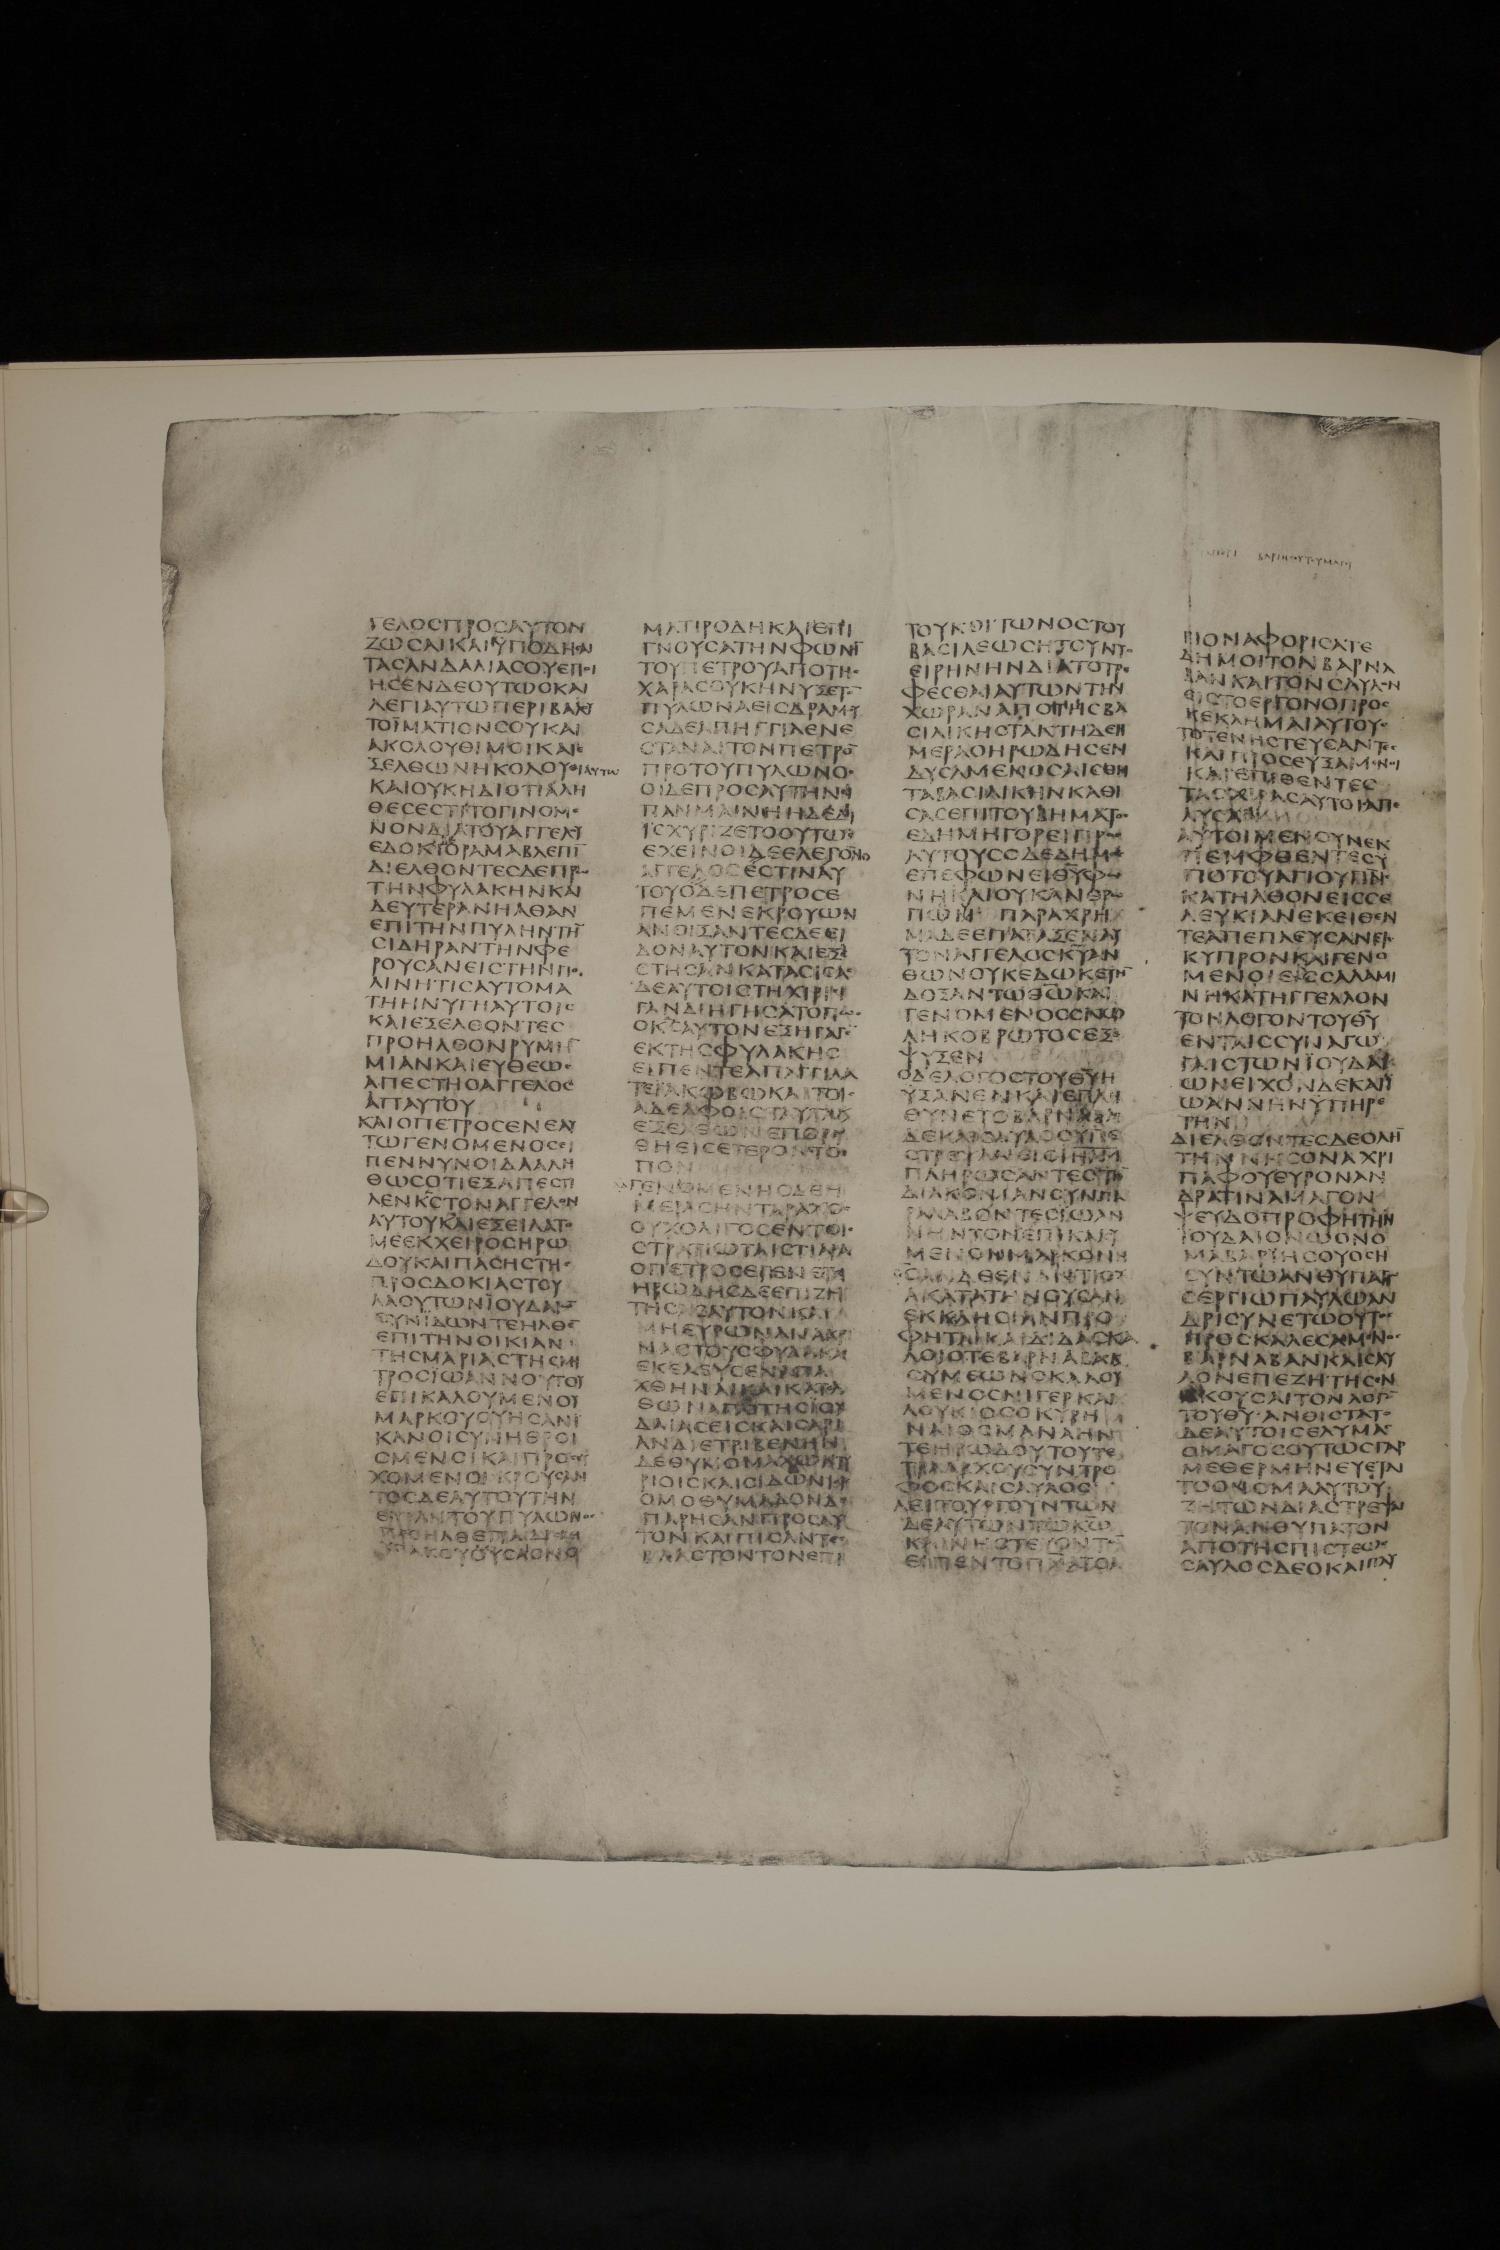 ΓΕΛΟCΠΡΟCΑΥΤΟΝ
ΖΩCΑΙΚΑΙΫΠΟΔΗCΑΙ
ΤΑCΑΝΔΑΛΙΑCΟΥΕΠΟΙ
ΗCΕΝΔΕΟΥΤΩCΚΑΙ
ΛΕΓΙΑΥΤΩΠΕΡΙΒΑΛΟΥ
ΤΟΪΜΑΤΙΟΝCΟΥΚΑΙ
ΑΚΟΛΟΥΘΙΜΟΙΚΑΙΕ
ΞΕΛΘΩΝΗΚΟΛΟΥΘΙΑΥΤΩ
ΚΑΙΟΥΚΗΔΙΟΤΙΑΛΗ
ΘΕCΕCΤΙΤΟΓΙΝΟΜΕ
ΝΟΝΔΙΑΤΟΥΑΓΓΕΛΟΥ
ΕΔΟΚΙΟΡΑΜΑΒΛΕΠΙ
ΔΙΕΛΘΟΝΤΕCΔΕΠΡΩ
ΤΗΝΦΥΛΑΚΗΝΚΑΙ
ΔΕΥΤΕΡΑΝΗΛΘΑΝ
ΕΠΙΤΗΝΠΥΛΗΝΤΗ̄
CΙΔΗΡΑΝΤΗΝΦΕ
ΡΟΥCΑΝΕΙCΤΗΝΠΟ
ΛΙΝΗΤΙCΑΥΤΟΜΑ
ΤΗΗΝΥΓΗΑΥΤΟΙC
ΚΑΙΕΞΕΛΘΟΝΤΕC
ΠΡΟΗΛΘΟΝΡΥΜΗ̄
ΜΙΑΝΚΑΙΕΥΘΕΩC
ΑΠΕCΤΗΟΑΓΓΕΛΟC
ΑΠΑΥΤΟΥ
ΚΑΙΟΠΕΤΡΟCΕΝΕΑΥ
ΤΩΓΕΝΟΜΕΝΟCΕΙ
ΠΕΝΝΥΝΟΙΔΑΑΛΗ
ΘΩCΟΤΙΕΞΑΠΕCΤΙ
ΛΕΝΚ̄CΤΟΝΑΓΓΕΛΟΝ
ΑΥΤΟΥΚΑΙΕΞΕΙΛΑΤΟ
ΜΕΕΚΧΕΙΡΟCΗΡΩ
ΔΟΥΚΑΙΠΑCΗCΤΗC
ΠΡΟCΔΟΚΙΑCΤΟΥ
ΛΑΟΥΤΩΝΪΟΥΔΑΙΩ̄
CΥΝΪΔΩΝΤΕΗΛΘΕ
ΕΠΙΤΗΝΟΙΚΙΑΝ
ΤΗCΜΑΡΙΑCΤΗCΜΗ
ΤΡΟCΪΩΑΝΝΟΥΤΟΥ
ΕΠΙΚΑΛΟΥΜΕΝΟΥ
ΜΑΡΚΟΥΟΥΗCΑΝΙ
ΚΑΝΟΙCΥΝΗΘΡΟΙ
CΜΕΝΟΙΚΑΙΠΡΟCΕΥ
ΧΟΜΕΝΟΙΚΡΟΥCΑΝ
ΤΟCΔΕΑΥΤΟΥΤΗΝ
ΘΥΡΑΝΤΟΥΠΥΛΩΝΟC
ΠΡΟΗΛΘΕΠΑΙΔΙCΚΗ
ΥΠΑΚΟΥΟΥCΑΟΝΟ
ΜΑΤΙΡΟΔΗΚΑΙΕΠΙ
ΓΝΟΥCΑΤΗΝΦΩΝΗ̄
ΤΟΥΠΕΤΡΟΥΑΠΟΤΗC
ΧΑΡΑCΟΥΚΗΝΥΞΕΤΟ̄
ΠΥΛΩΝΑΕΙCΔΡΑΜΟΥ
CΑΔΕΑΠΗΓΓΙΛΕΝΕ
CΤΑΝΑΙΤΟΝΠΕΤΡΟ̄
ΠΡΟΤΟΥΠΥΛΩΝΟC
ΟΙΔΕΠΡΟCΑΥΤΗΝΕΙ
ΠΑΝΜΑΙΝΗΗΔΕΔΙ
ΪCΧΥΡΙΖΕΤΟΟΥΤΩC
ΕΧΕΙΝΟΙΔΕΕΛΕΓΟΝΟ
ΑΓΓΕΛΟCΕCΤΙΝΑΥ
ΤΟΥΟΔΕΠΕΤΡΟCΕ
ΠΕΜΕΝΕΚΡΟΥΩΝ
ΑΝΟΙΞΑΝΤΕCΔΕΕΙ
ΔΟΝΑΥΤΟΝΚΑΙΕΞΕ
CΤΗCΑΝΚΑΤΑCΙCΑC
ΔΕΑΥΤΟΙCΤΗΧΙΡΙCΙ
ΓΑΝΔΙΗΓΗCΑΤΟΠΩC
ΟΚ̄CΑΥΤΟΝΕΞΗΓΑΓΕ̄
ΕΚΤΗCΦΥΛΑΚΗC
ΕΙΠΕΝΤΕΑΠΑΓΓΙΛΑ
ΤΕΪΑΚΩΒΩΚΑΙΤΟΙC
ΑΔΕΛΦΟΙCΤΑΥΤΑΚ
ΕΞΕΛΘΩΝΕΠΟΡΕΥ
ΘΗΕΙCΕΤΕΡΟΝΤΟ
ΠΟΝ
ΓΕΝΟΜΕΝΗCΔΕΗ
ΜΕΡΑCΗΝΤΑΡΑΧΟC
ΟΥΚΟΛΙΓΟCΕΝΤΟΙC
CΤΡΑΤΙΩΤΑΙCΤΙΑΡΑ
ΟΠΕΤΡΟCΕΓΕΝΕΤΟ
ΗΡΩΔΗCΔΕΕΠΙΖΗ
ΤΗCΑCΑΥΤΟΝΚΑΙ
ΜΗΕΥΡΩΝΑΝΑΚΡΙ
ΝΑCΤΟΥCΦΥΛΑΚΑC
ΕΚΕΛΕΥCΕΝΑΠΑ
ΧΘΗΝΑΙΚΑΙΚΑΤΕΛ
ΘΩΝΑΠΟΤΗCΪΟΥ
ΔΑΙΑCΕΙCΚΑΙCΑΡΙ
ΑΝΔΙΕΤΡΙΒΕΝΗΝ
ΔΕΘΥΜΟΜΑΧΩΝΤΥ
ΡΙΟΙCΚΑΙCΙΔΩΝΙΟΙC
ΟΜΟΘΥΜΑΔΟΝΔΕ
ΠΑΡΗCΑΝΠΡΟCΑΥ
ΤΟΝΚΑΙΠΙCΑΝΤΕC
ΒΛΑCΤΟΝΤΟΝΕΠΙ
ΤΟΥΚΟΙΤΩΝΟCΤΟΥ
ΒΑCΙΛΕΩCΗΤΟΥΝΤΟ
ΕΙΡΗΝΗΝΔΙΑΤΟΤΡΕ
ΦΕCΘΑΙΑΥΤΩΝΤΗΝ
ΧΩΡΑΝΑΠΟΤΗCΒΑ
CΙΛΙΚΗCΤΑΚΤΗΔΕΗ
ΜΕΡΑΟΗΡΩΔΗCΕΝ
ΔΥCΑΜΕΝΟCΑΙCΘΗ
ΤΑΒΑCΙΛΙΚΗΝΚΑΘΙ
CΑCΕΠΙΤΟΥΒΗΜΑΤΟC
ΕΔΗΜΗΓΟΡΕΙΠΡΟC
ΑΥΤΟΥCΟΔΕΔΗΜΟC
ΕΠΕΦΩΝΕΙΘ̄ΥΦΩ
ΝΗΚΑΙΟΥΚΑΝΘΡΩ
ΠΟΥ ΠΑΡΑΧΡΗ
ΜΑΔΕΕΠΑΤΑΞΕΝΑΥ
ΤΟΝΑΓΓΕΛΟCΚ̄ΥΑΝ
ΘΩΝΟΥΚΕΔΩΚΕΤΗ̄
ΔΟΞΑΝΤΩΘ̄ΩΚΑΙ
ΓΕΝΟΜΕΝΟCCΚΩ
ΛΗΚΟΒΡΩΤΟCΕΞΕ
ΨΥΞΕΝ
ΟΔΕΛΟΓΟCΤΟΥΘ̄ΥΗ
ΥΞΑΝΕΝΚΑΙΕΠΛΗ
ΘΥΝΕΤΟΒΑΡΝΑΒΑC
ΔΕΚΑΙCΑΥΛΟCΫΠΕ
CΤΡΕΨΑΝΕΙCΪΗΛ̄Μ
ΠΛΗΡΩCΑΝΤΕCΤΗ̄
ΔΙΑΚΟΝΙΑΝCΥΝΠΑ
ΡΑΛΑΒΟΝΤΕCΪΩΑΝ
ΝΗΝΤΟΝΕΠΙΚΛΗ
ΜΕΝΟΝΜΑΡΚΟΝΗ
CΑΝΔΕΕΝΑΝΤΙΟΧΙ
ΑΚΑΤΑΤΗΝΟΥCΑΝ
ΕΚΚΛΗCΙΑΝΠΡΟ
ΦΗΤΑΙΚΑΙΔΙΔΑCΚΑ
ΛΟΙΟΤΕΒΑΡΝΑΒΑCΚ
CΥΜΕΩΝΟΚΑΛΟΥ
ΜΕΝΟCΝΙΓΕΡΚΑΙ
ΛΟΥΚΙΟCΟΚΥΡΗ
ΝΑΙΟCΜΑΝΑΗΝ
ΤΕΗΡΩΔΟΥΤΟΥΤΕ
ΤΡΑΑΡΧΟΥCΥΝΤΡΟ
ΦΟCΚΑΙCΑΥΛΟC
ΛΕΙΤΟΥΡΓΟΥΝΤΩΝ
ΔΕΑΥΤΩΝΤΩΚ̄Ω
ΚΑΙΝΗCΤΕΥΟΝΤΩ̄
ΕΙΠΕΝΤΟΠ̄ΝΑΤΟΑ
ΓΙΟΝΑΦΟΡΙCΑΤΕ
ΔΗΜΟΙΤΟΝΒΑΡΝΑ
ΒΑΝΚΑΙΤΟΝCΑΥΛΟΝ
ΕΙCΤΟΕΡΓΟΝΟΠΡΟC
ΚΕΚΛΗΜΑΙΑΥΤΟΥC
ΤΟΤΕΝΗCΤΕΥCΑΝΤΕC
ΚΑΙΠΡΟCΕΥΞΑΜΕΝΟΙ
ΚΑΙΕΠΙΘΕΝΤΕC
ΤΑCΧΙΡΑCΑΥΤΟΙCΑΠΕ
ΛΥCΑΝ
ΑΥΤΟΙΜΕΝΟΥΝΕΚ
ΠΕΜΦΘΕΝΤΕCΫ
ΠΟΤΟΥΑΓΙΟΥΠ̄Ν̄C
ΚΑΤΗΛΘΟΝΕΙCCΕ
ΛΕΥΚΙΑΝΕΚΕΙΘΕΝ
ΤΕΑΠΕΠΛΕΥCΑΝΕΙC
ΚΥΠΡΟΝΚΑΙΓΕΝΟ
ΜΕΝΟΙΕΙCCΑΛΑΜΙ
ΝΗΚΑΤΗΓΓΕΛΛΟΝ
ΤΟΝΛΟΓΟΝΤΟΥΘ̄Υ
ΕΝΤΑΙCCΥΝΑΓΩ
ΓΑΙCΤΩΝΪΟΥΔΑΙ
ΩΝΕΙΧΟΝΔΕΚΑΙΪ
ΩΑΝΝΗΝΥΠΗΡΕ
ΤΗΝ
ΔΙΕΛΘΟΝΤΕCΔΕΟΛΗ̄
ΤΗΝΝΗCΟΝΑΧΡΙ
ΠΑΦΟΥΕΥΡΟΝΑΝ
ΔΡΑΤΙΝΑΜΑΓΟΝ
ΨΕΥΔΟΠΡΟΦΗΤΗΝ
ΪΟΥΔΑΙΟΝΩΟΝΟ
ΜΑΒΑΡΙΗCΟΥΟCΗ
CΥΝΤΩΑΝΘΥΠΑΤ
CΕΡΓΙΩΠΑΥΛΩΑΝ
ΔΡΙCΥΝΕΤΩΟΥΤΟC
ΠΡΟCΚΑΛΕCΑΜΕΝΟC
ΒΑΡΝΑΒΑΝΚΑΙCΑΥ
ΛΟΝΕΠΕΖΗΤΗCΕΝ
ΑΚΟΥCΑΙΤΟΝΛΟΓΟ̄
ΤΟΥΘ̄Υ·ΑΝΘΙCΤΑΤΟ
ΔΕΑΥΤΟΙCΕΛΥΜΑC
ΟΜΑΓΟCΟΥΤΩCΓΑΡ
ΜΕΘΕΡΜΗΝΕΥΕΤΑΙ
ΤΟΟΝΟΜΑΑΥΤΟΥ
ΖΗΤΩΝΔΙΑCΤΡΕΨΑΙ
ΤΟΝΑΝΘΥΠΑΤΟΝ
ΑΠΟΤΗCΠΙCΤΕΩC
CΑΥΛΟCΔΕΟΚΑΙΠΑΥ